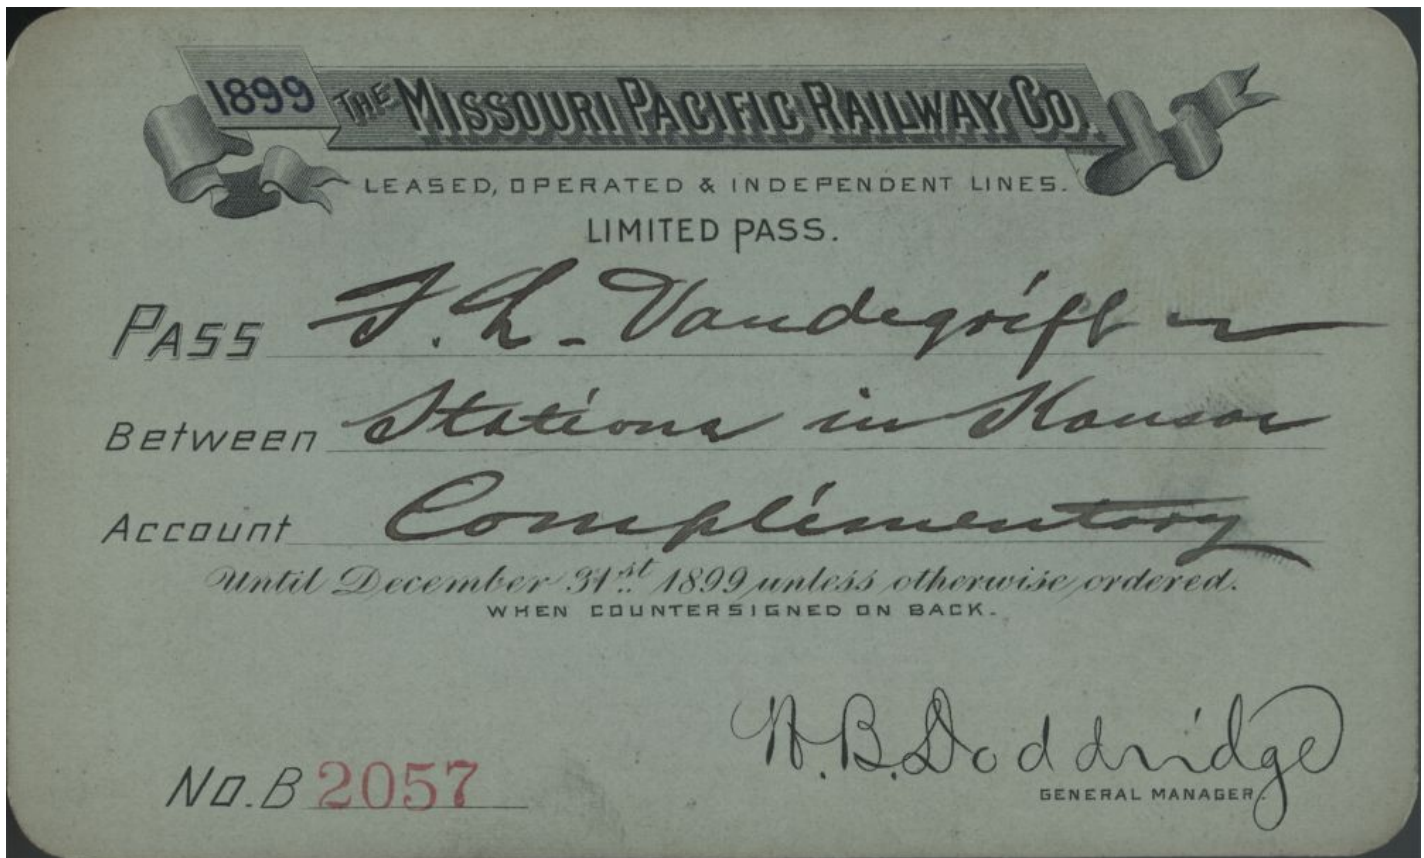 1899 THE MISSOURI PACIFIC RAILWAY CO.
LEASED, OPERATED & INDEPENDENT LINES.
LIMITED PASS.
PASS F. L. Vandegrift
Between Stations in Kansas
Account Complimentary
Until December 31st 1899 unless otherwise ordered.
WHEN COUNTERSIGNED ON BACK.
W. B. Doddridge
GENERAL MANAGER.
No. B 2057